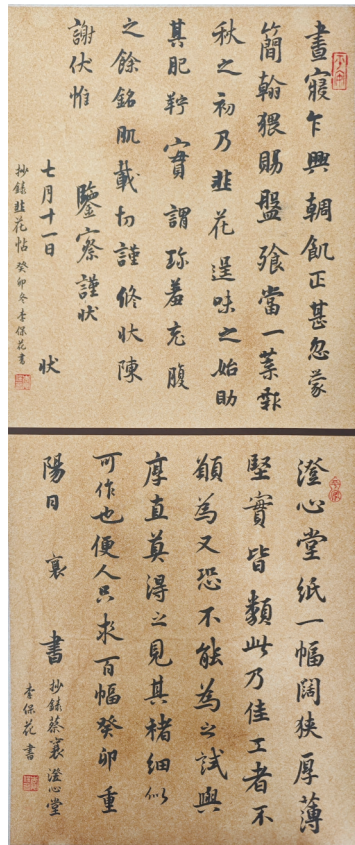 晝寢乍興輖飢正甚忽蒙
簡翰猥賜盤飧當一葉報
秋之初乃韭花逞味之始助
其肥羜實謂珍羞充腹
之餘銘肌載切謹修狀陳
謝伏惟
鑒察謹狀
七月十一日 狀
抄錄韭花帖 癸卯冬 李保花書
澄心堂紙一幅闊狹厚薄
堅實皆類此乃佳工者不
願為又恐不能為之試與
厚直莫得之見其楮細似
可作也便人只求百幅癸卯重
陽日 襄 書
抄錄蔡襄澄心堂
李保花書